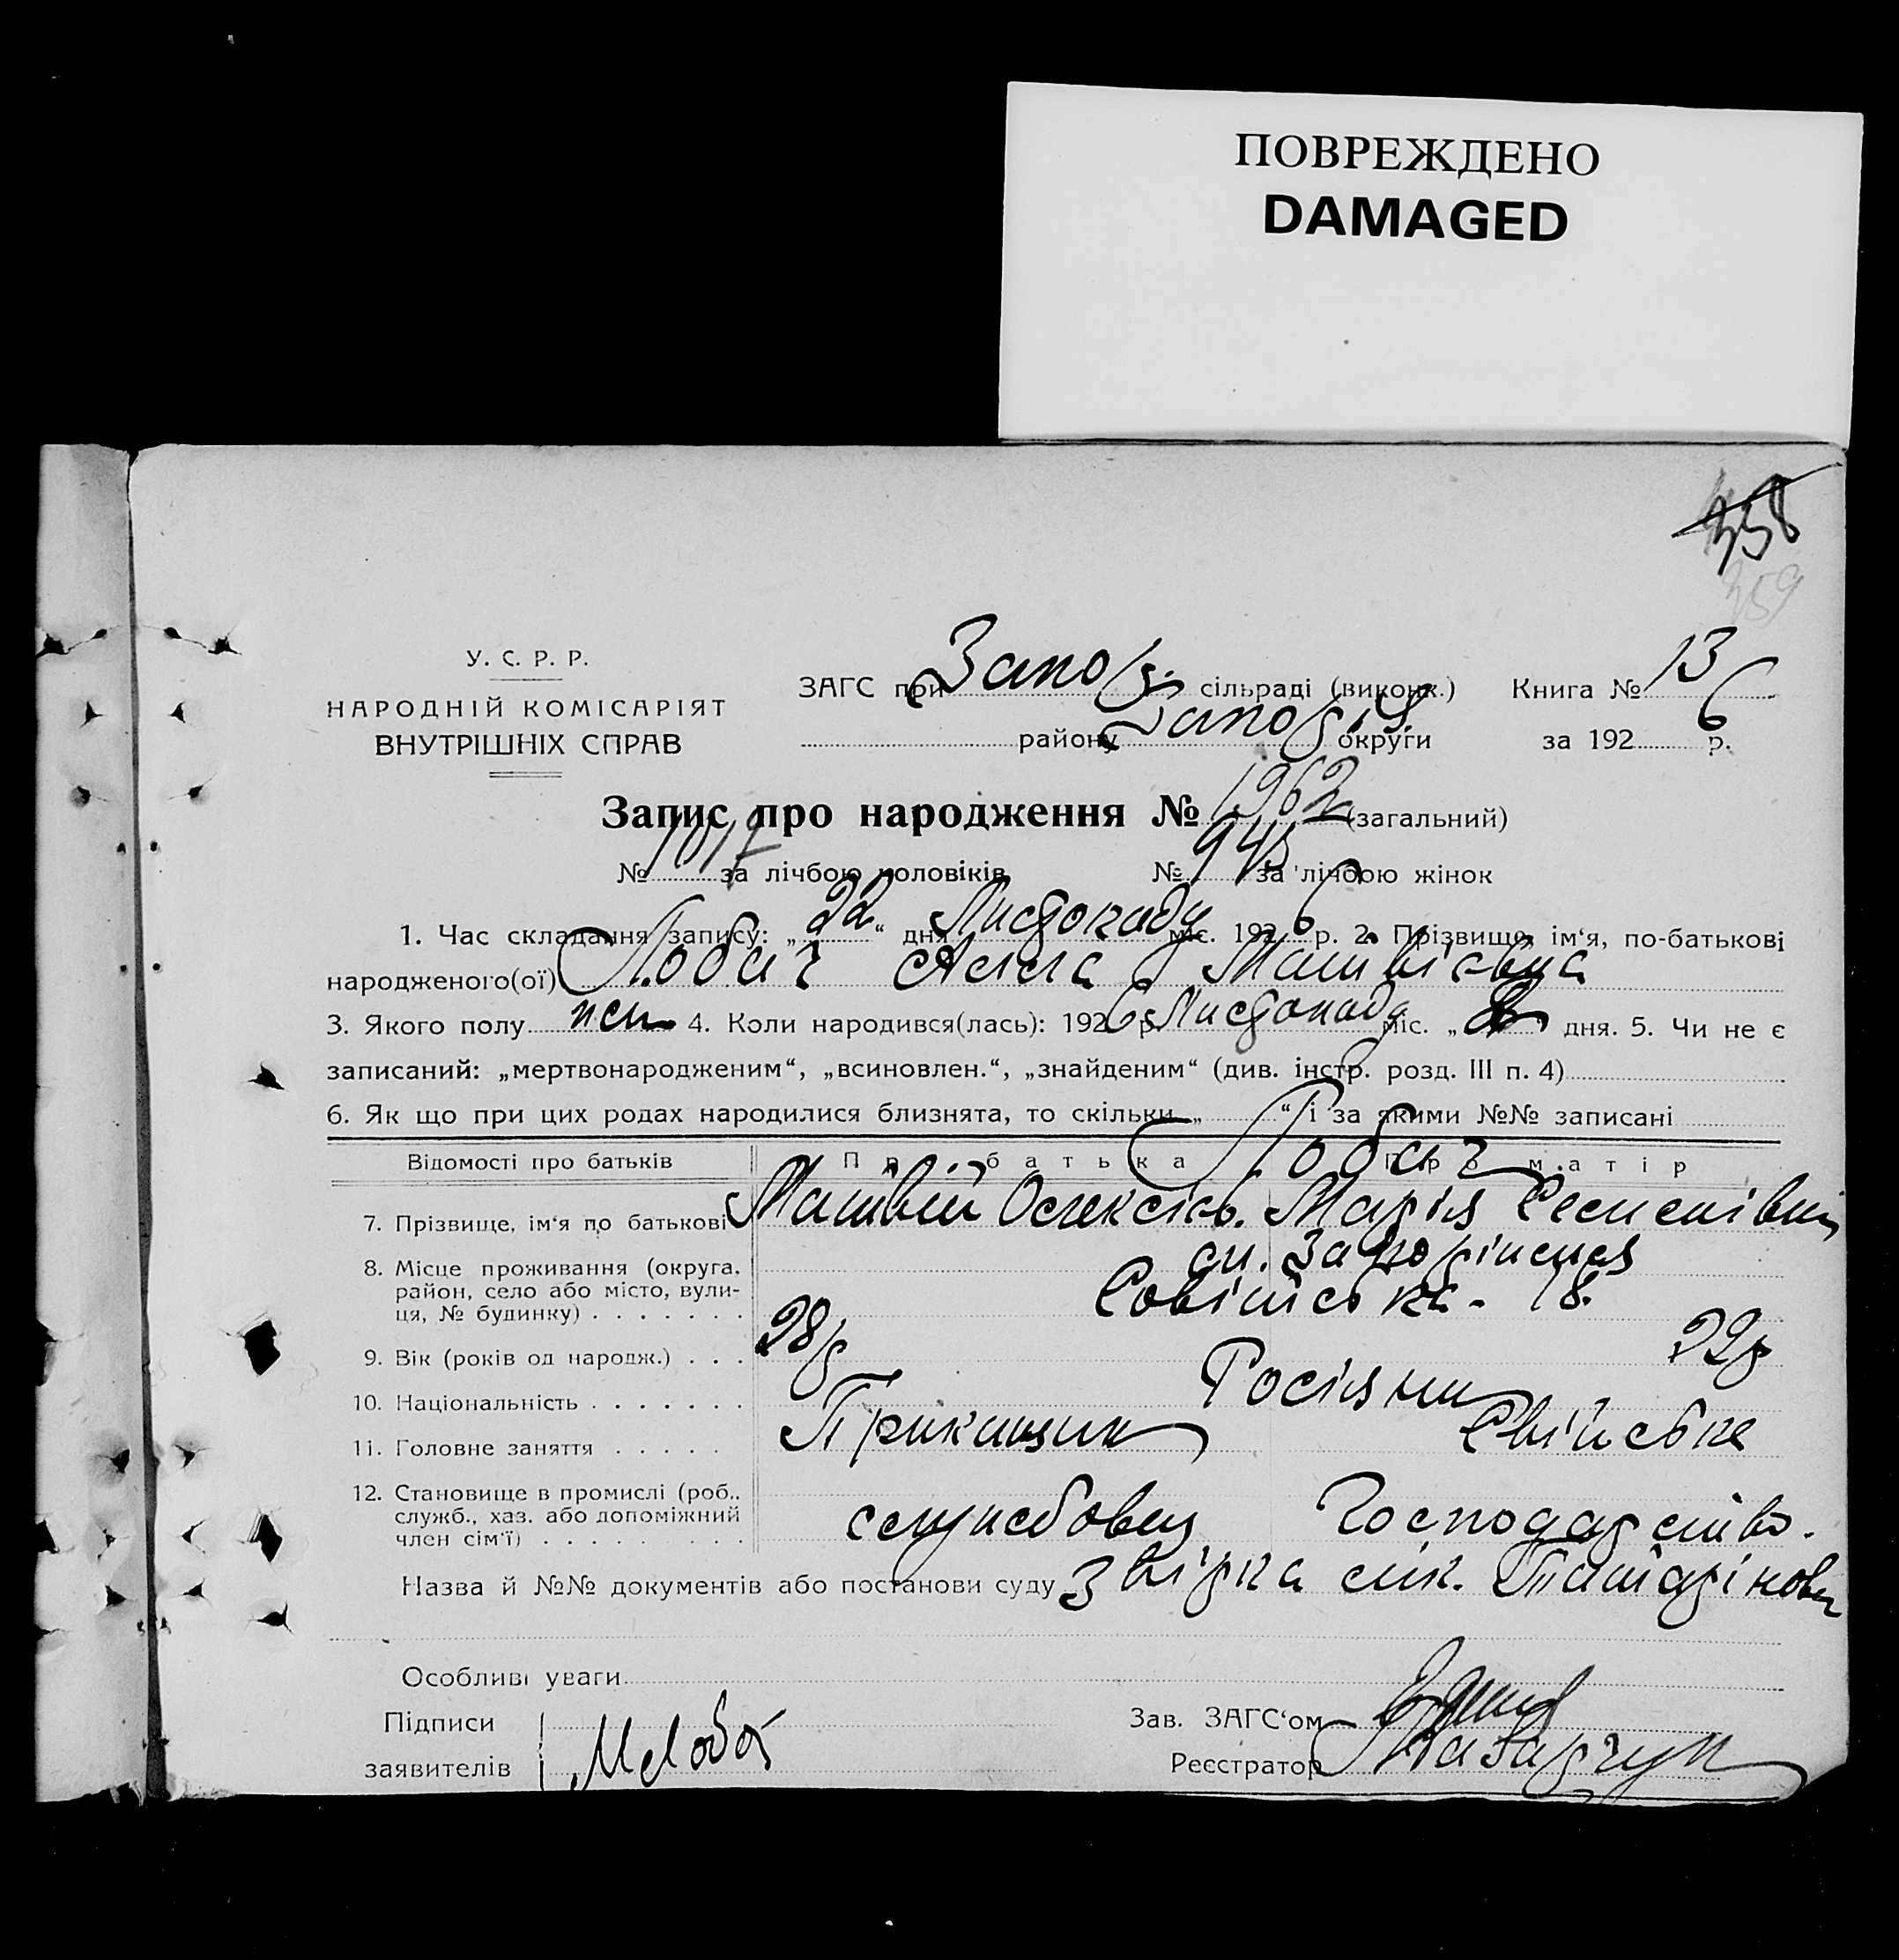 ПОВРЕЖДЕНО
DAMAGED
358
359
У. С. Р. Р.
НАРОДНІЙ КОМІСАРІЯТ
ВНУТРІШНІХ СПРАВ
ЗАГС при Запор. сільраді (виконк.) Книга № 13
району Запоріз. округи за 1926 р.
Запис про народження № 1962 (загальний)
№ 1017 за лічбою чоловіків № 945 за лічбою жінок
1. Час складання запису: „22“ дня Листопаду міс. 1926 р. 2. Прізвище, ім‘я, по-батькові
народженого(ої) Лобач Алла Матвіівна
3. Якого полу жен 4. Коли народився(лась): 1926 р. Листопаду міс. „ дня. 5. Чи не є
записаний: „мертвонародженим“, „всиновлен.“, „знайденим“ (див. інстр. розд. III п. 4)
6. Як що при цих родах народилися близнята, то скільки „ “ і за якими №№ записані
Відомості про батьків Про батька Про матір
Лобач
7. Прізвище, ім‘я по батькові Матвій Олексієв. Марія Семенівна
8. Місце проживання (округа, район, село або місто, вулиця, № будинку) . . . . . . . ст. Запоріжжя
Совітська - 18.
9. Вік (років од народж.) . . . 28р 22р
10. Національність . . . . . . . Росіяни
11. Головне заняття . . . . . Прикащик Свійське
12. Становище в промислі (роб., служб., хаз. або допоміжний член сім‘ї) . . . . . . . . . службовец Господарство.
Назва й №№ документів або постанови суду Звірка спк. Татарінова
Особливі уваги
Підписи
заявителів МЛобач
Зав. ЗАГС‘ом
Реєстратор